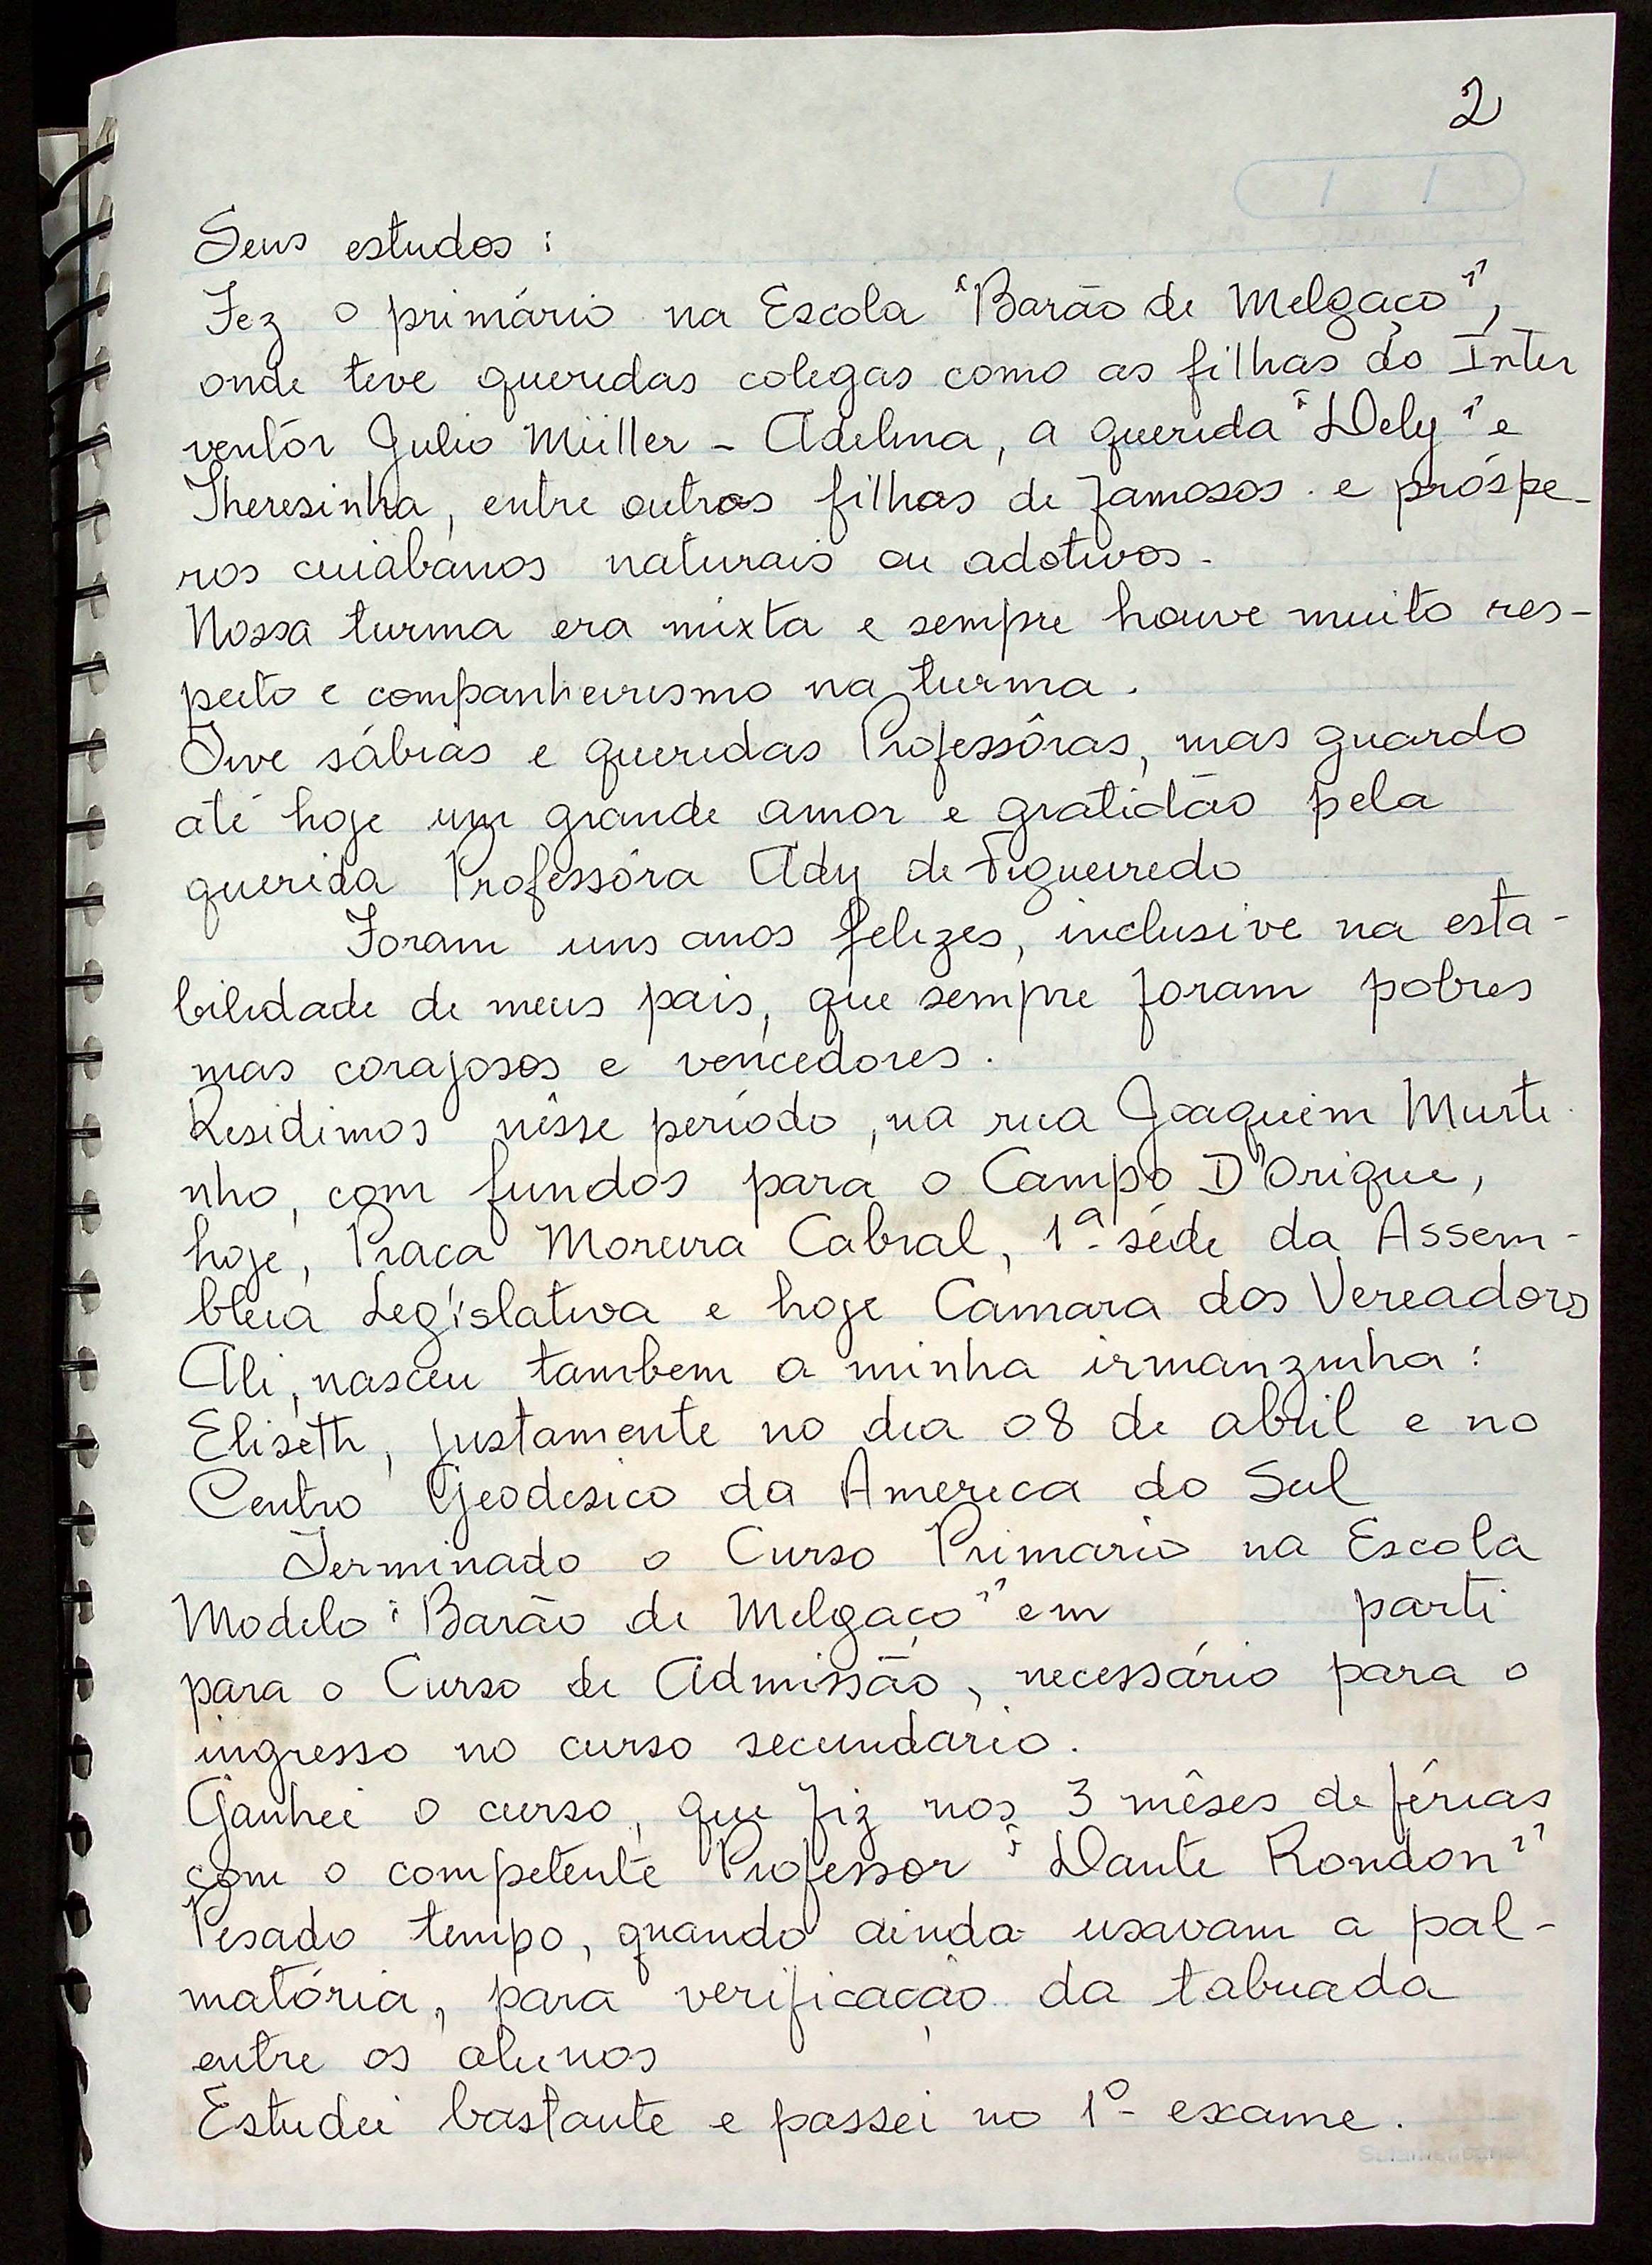 2
Seus estudos:
Fez o primário na Escola "Barão de Melgaço",
onde teve queridas colegas como as filhas do Inter
ventôr Julio Müller - Adelma, a querida "Dely" e
Theresinha, entre outras filhas de famosos e próspe-
ros cuiabanos naturais ou adotivos.
Nossa turma era mixta e sempre houve muito res-
peito e companheirismo na turma.
Tive sábias e queridas Professôras, mas guardo
até hoje um grande amor e gratidão pela
querida Professôra Ady de Figueiredo
Foram uns anos felizes, inclusive na esta-
bilidade de meus pais, que sempre foram pobres
mas corajosos e vencedores.
Residimos nêsse período, na rua Joaquim Murti
nho, com fundos para o Campo D'Orique,
hoje, Praça Moreira Cabral, 1ª séde da Assem-
bleia Legislativa e hoje Camara dos Vereadores
Ali, nasceu tambem a minha irmanzinha:
Eliseth, justamente no dia 08 de abril e no
Centro Geodesico da America do Sul
Terminado o Curso Primario na Escola
Modelo "Barão de Melgaço" em parti
para o Curso de Admissão, necessário para o
ingresso no curso secundario.
Ganhei o curso, que fiz nos 3 mêses de férias
com o competente Professor "Dante Rondon"
Pesado tempo, quando ainda usavam a pal-
matória, para verificação da tabuada
entre os alunos
Estudei bastante e passei no 1º exame.